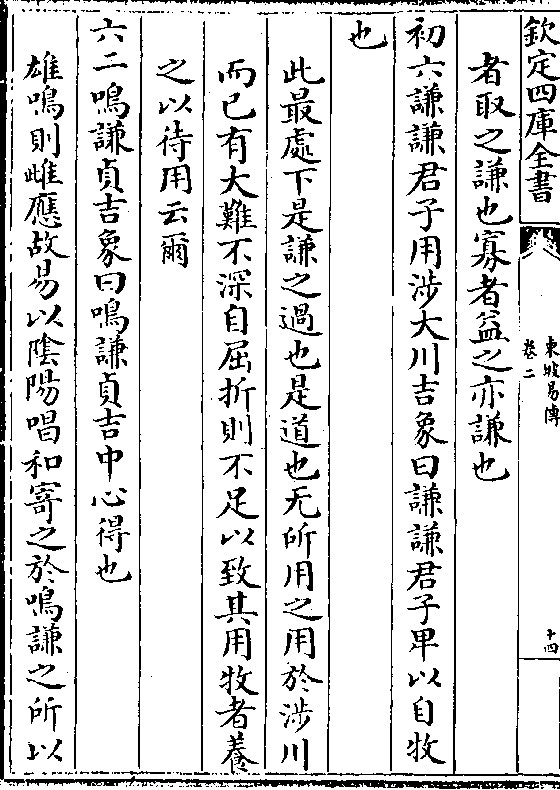 欽定四庫全書
東坡易傳
卷二
十四
者取之謙也寡者益之亦謙也
初六謙謙君子用涉大川吉象曰謙謙君子卑以自牧
也
此最處下是謙之過也是道也无所用之用於涉川
而已有大難不深自屈折則不足以致其用牧者養
之以待用云爾
六二鳴謙貞吉象曰鳴謙貞吉中心得也
雄鳴則雌應故易以陰陽唱和寄之於鳴謙之所以